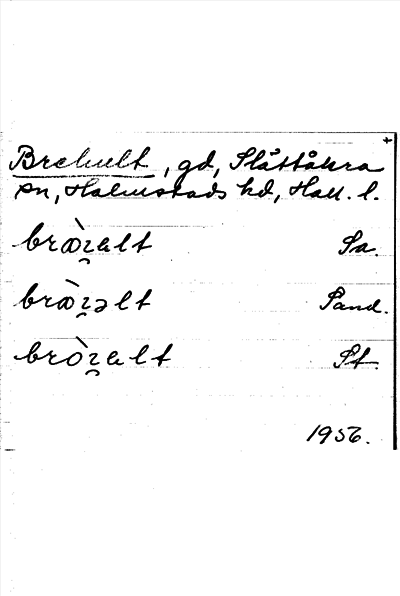 +
Brehult, gd, Slättåkra
sn, Halmstads hd, Hall. l.
bræ̀ı̯alt Sa.
bræ̀ı̯əlt Sand.
brò̀ı̯alt St.
1956.